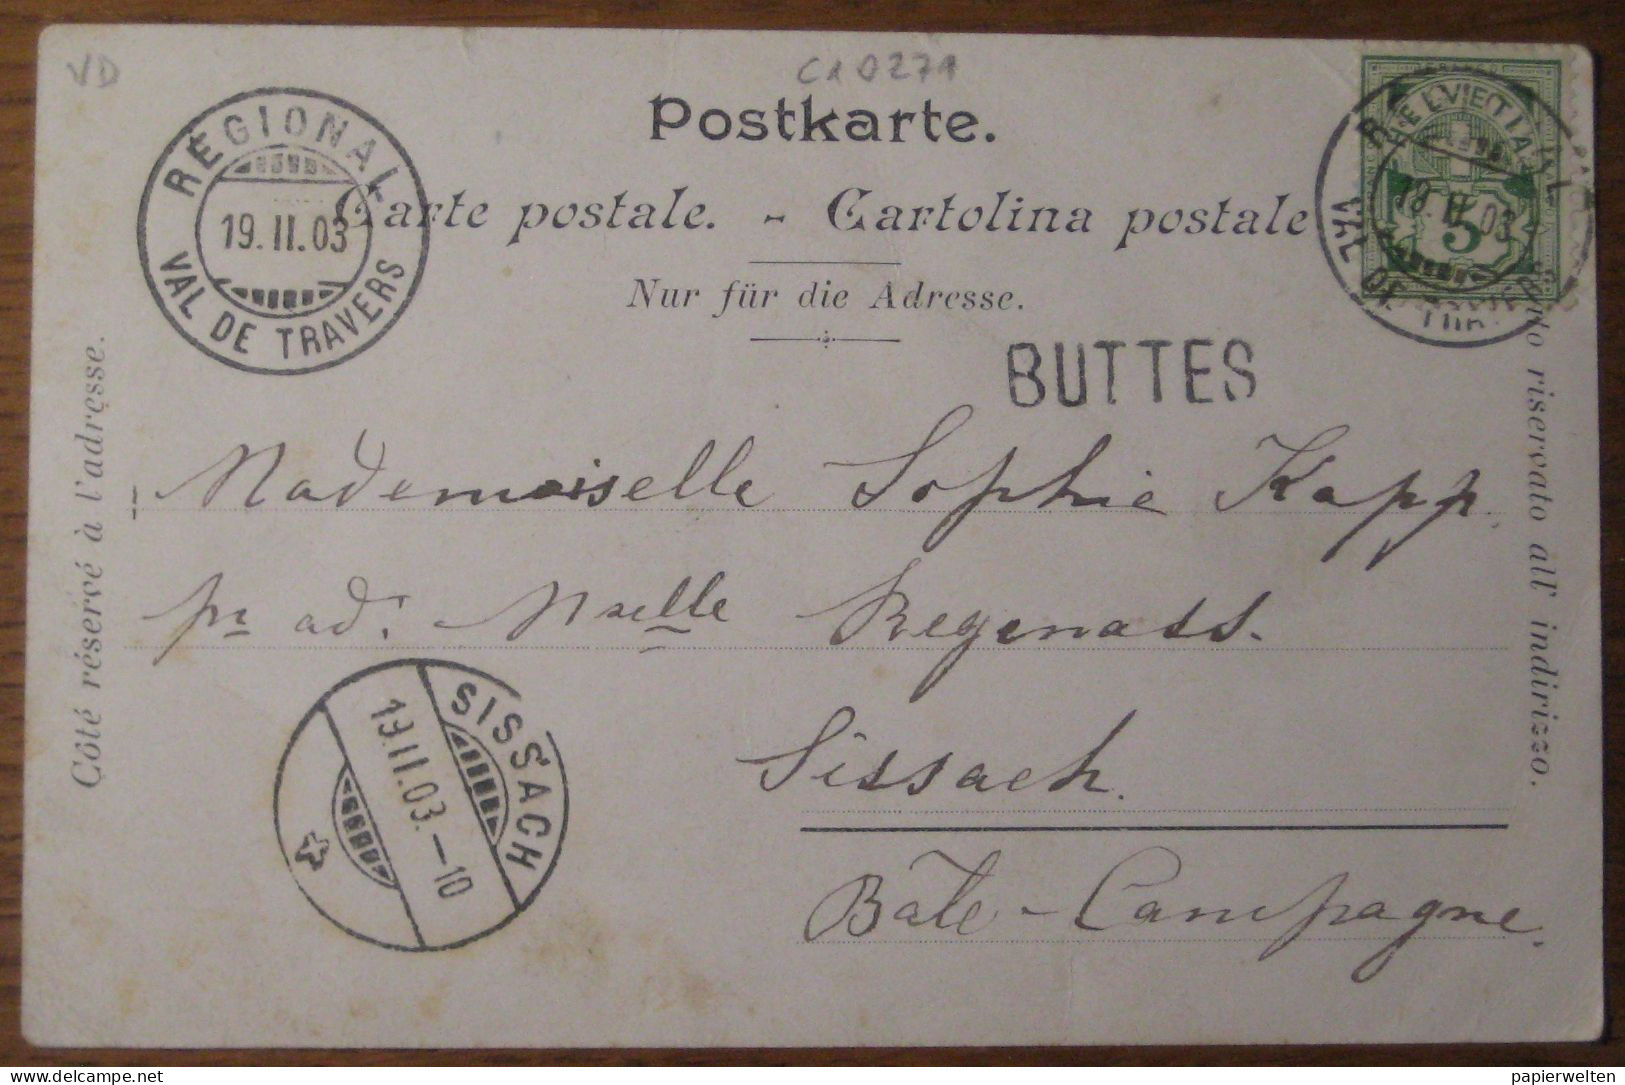 VD
C10271
Postkarte.
Carte postale. - Cartolina postale
Nur für die Adresse.
RÉGIONAL
19.II.03
VAL DE TRAVERS
HELVETIA
5
19.II.03
VAL DE
BUTTES
Côté réservé à l'adresse.
riservato all' indirizzo.
Mademoiselle Sophie Kapp.
pr ad. Mselle Regenass.
Sissach.
Bâle-Campagne.
SISSACH
19.II.03.–10
www.delcampe.net
papierwelten